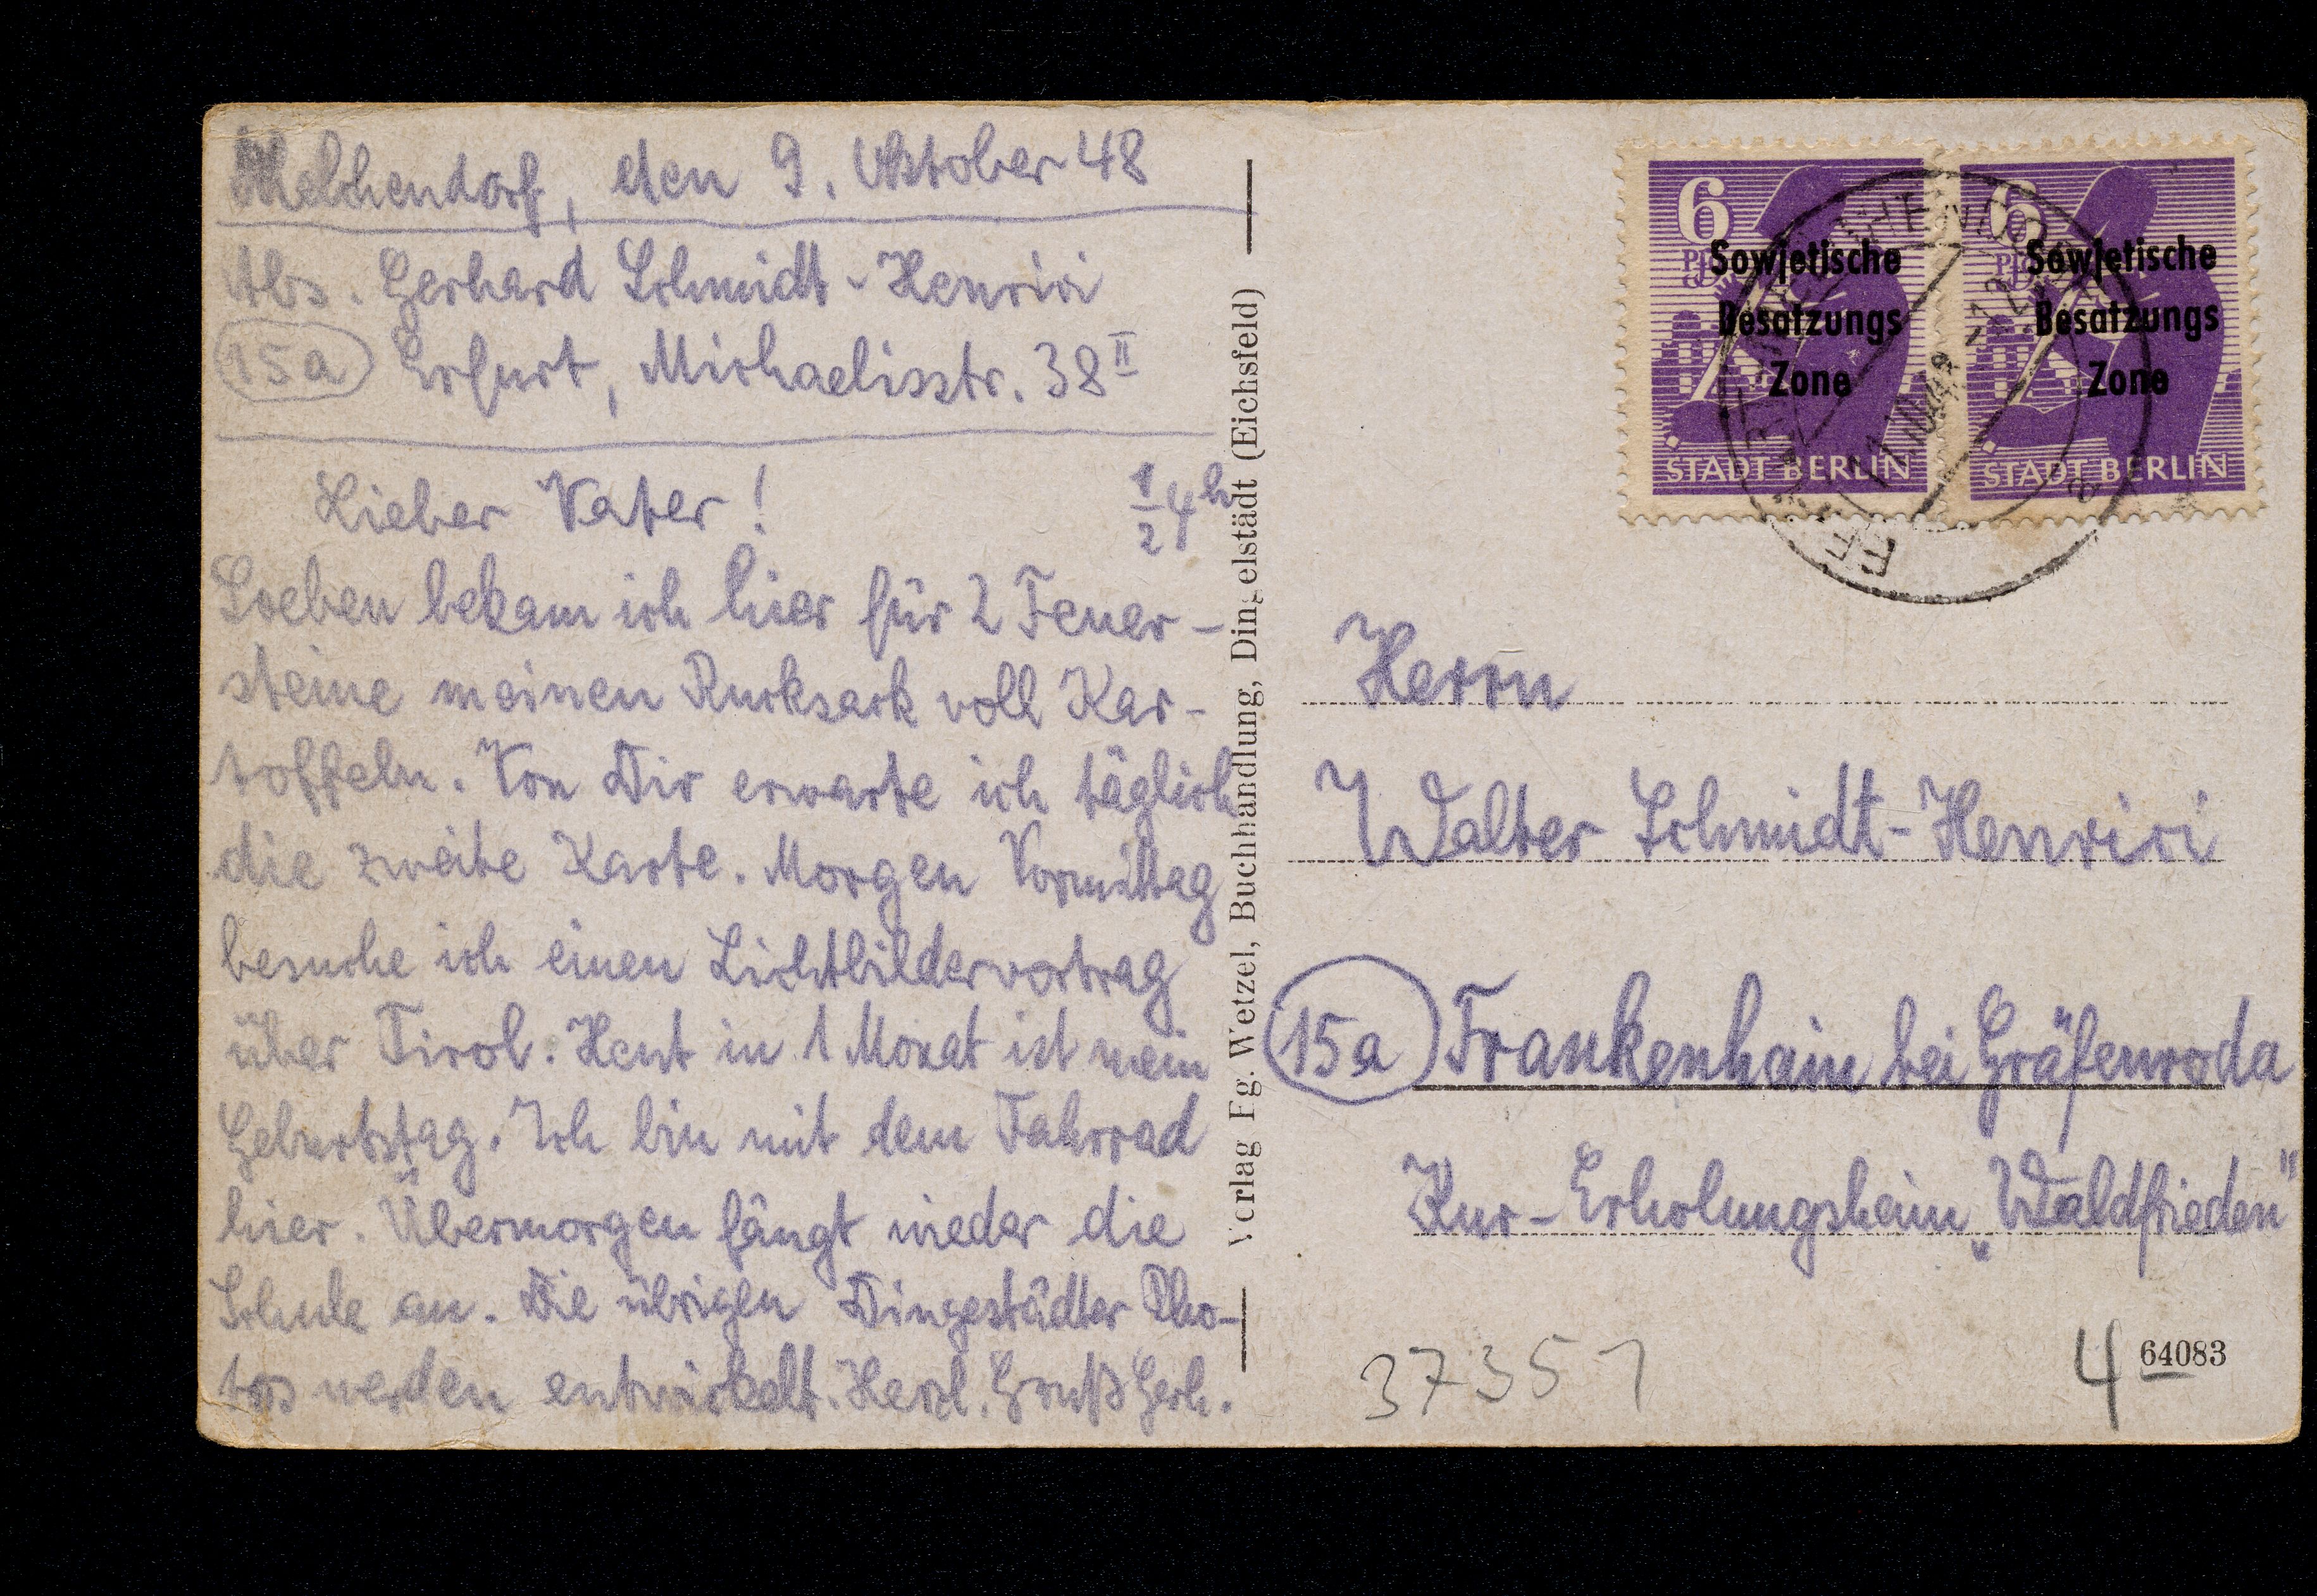 Melchendorf, den 9. Oktober 48
Abs. Gerhard Schmidt-Henrici
15a Erfurt, Michaelisstr. 38 II
Lieber Vater! 1/2 4 h
Soeben bekam ich hier für 2 Feuer-
steine meinen Rucksack voll Kar-
toffeln. Von Dir erwarte ich täglich
die zweite Karte. Morgen Vormittag
besuche ich einen Lichtbildervortrag
über Tirol. Heut in 1 Monat ist mein
Geburtstag. Ich bin mit dem Fahrrad
hier. Übermorgen fängt wieder die
Schule an. Die übrigen Dingestädter Pho-
tos werden entwickelt. Herzl. Gruß Gerh.
Verlag Fg. Wetzel, Buchhandlung, Dingelstädt (Eichsfeld)
6 Pfg
Sowjetische
Besatzungs
Zone
STADT BERLIN
6 Pfg
Sowjetische
Besatzungs
Zone
STADT BERLIN
Herrn
Walter Schmidt-Henrici
15a Frankenhain bei Gräfenroda
Kur-Erholungsheim „Waldfrieden"
37351
4
64083